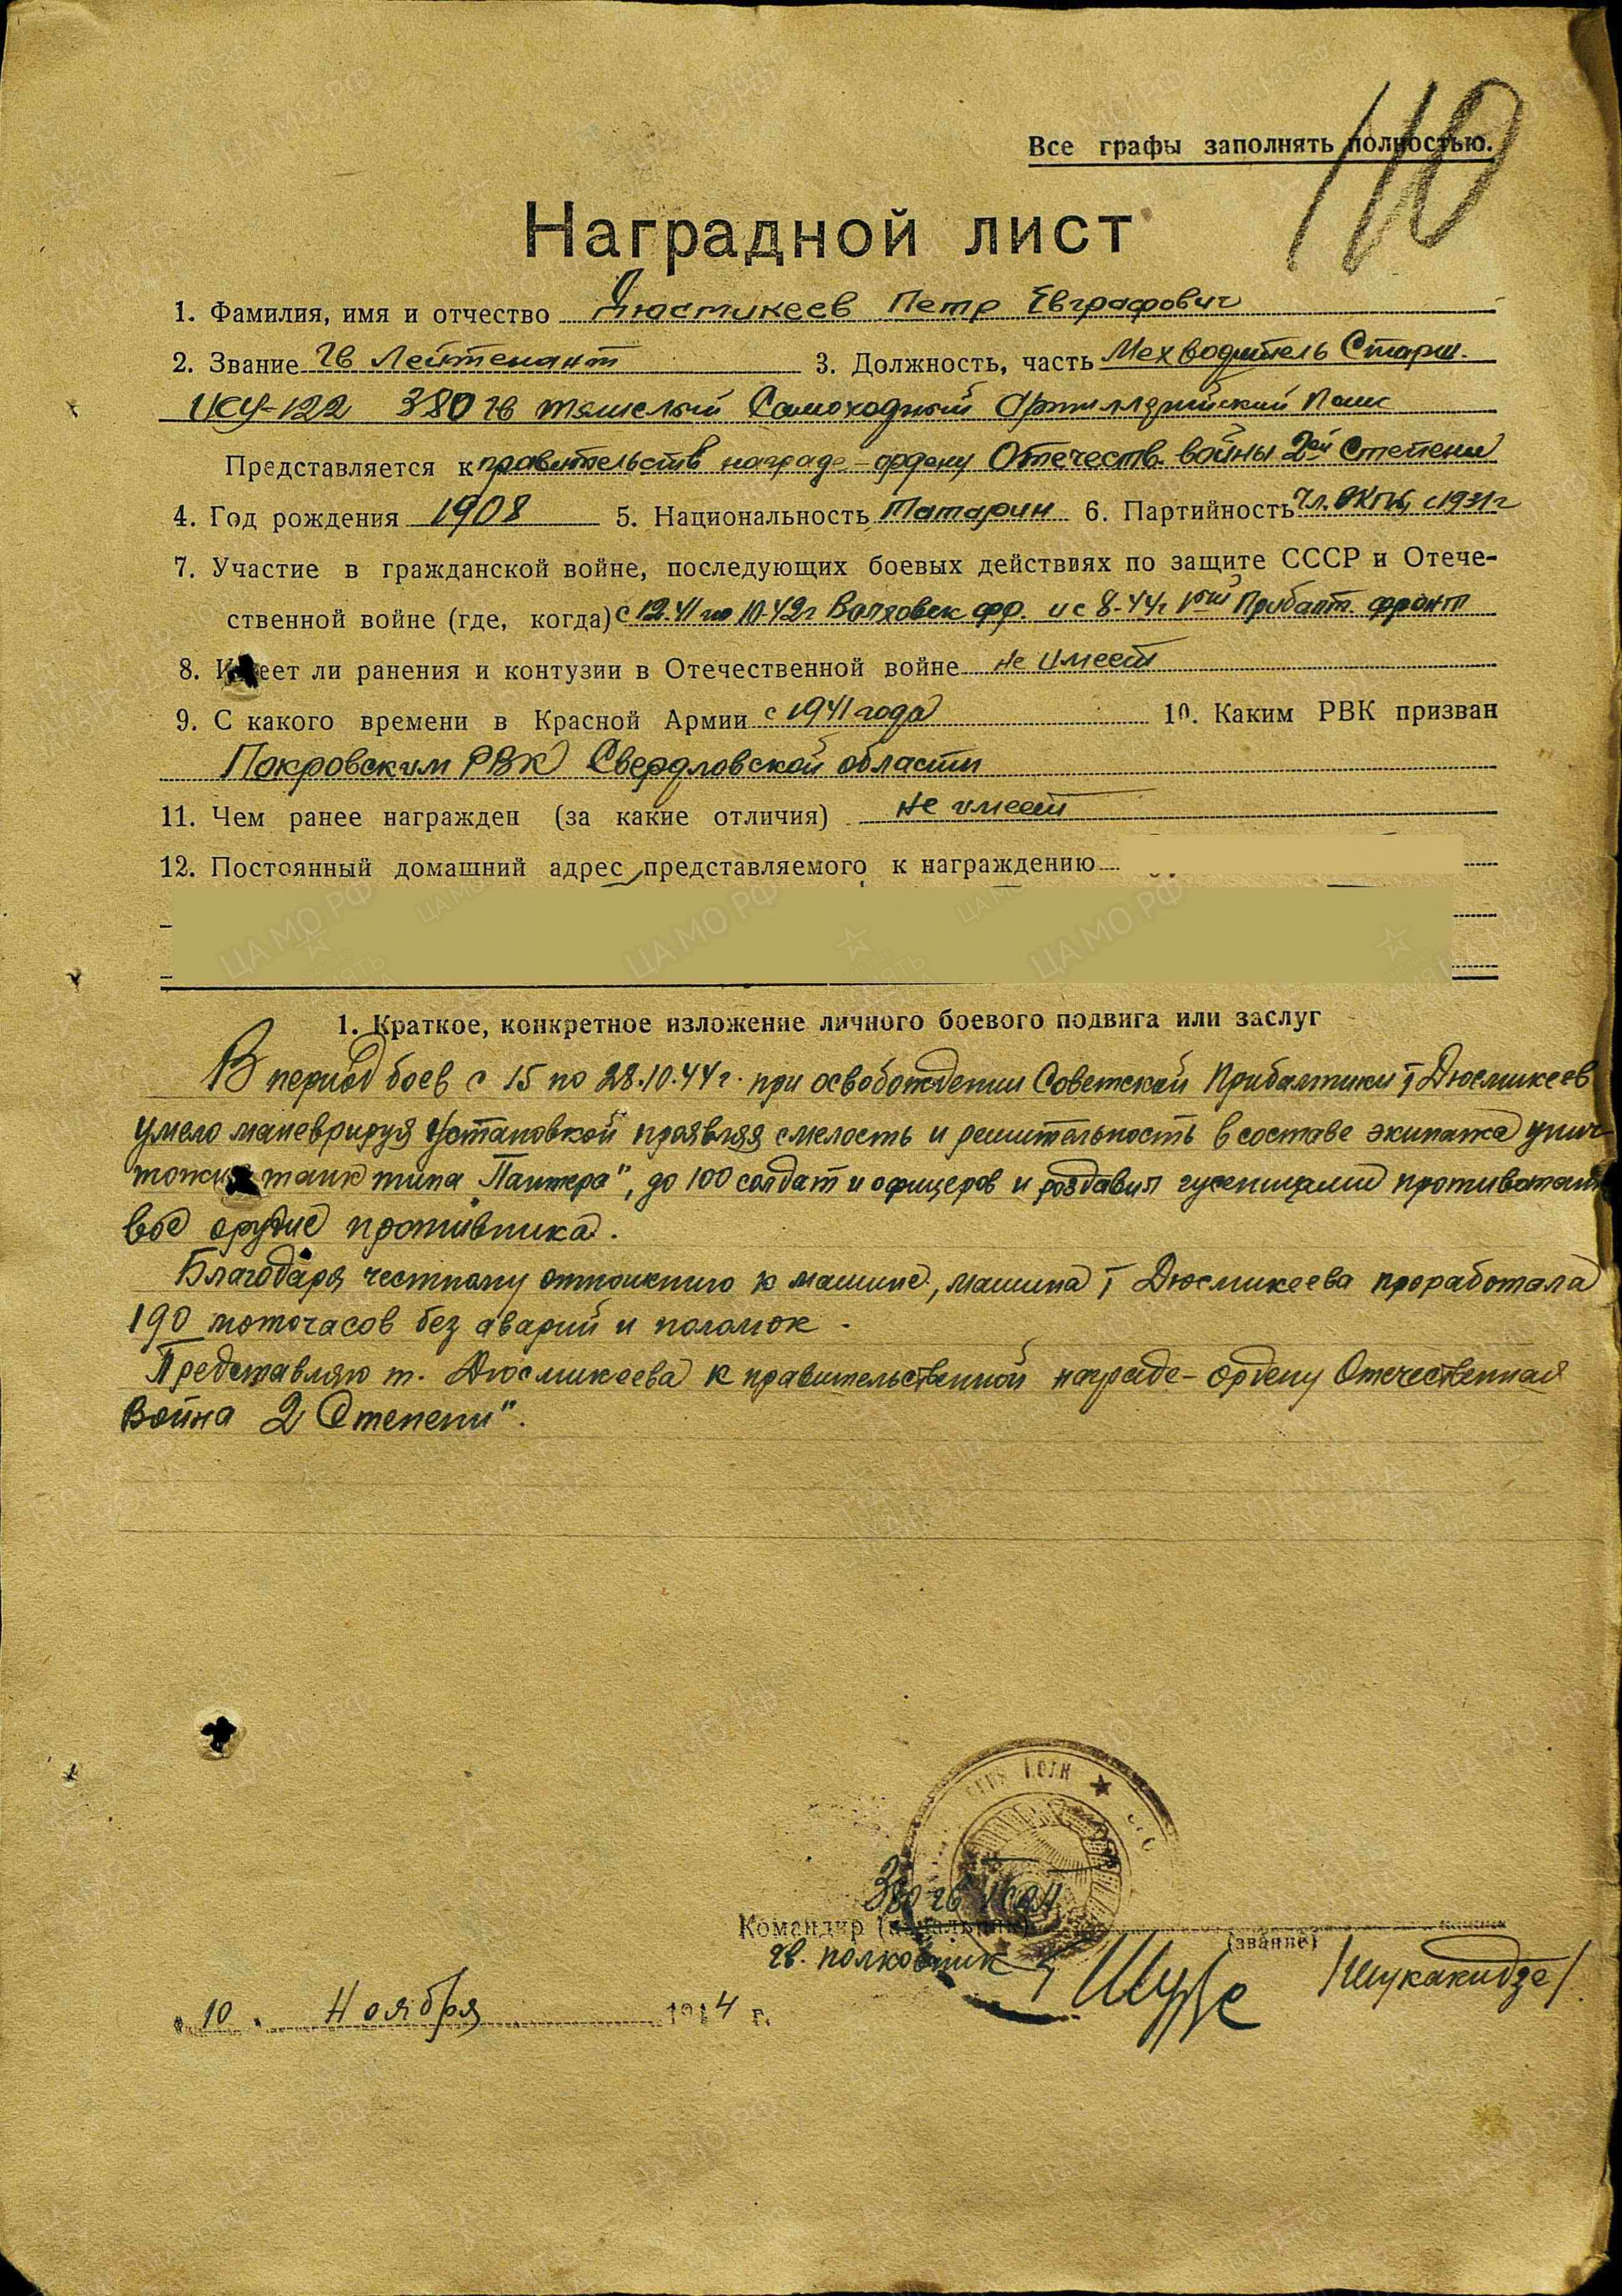 110
Все графы заполнять полностью.
Наградной лист
1. Фамилия, имя и отчество Дюсмикеев Петр Евграфович
2. Звание Гв Лейтенант 3. Должность, часть Мехводитель Старш.
ИСУ-122 380 гв тяжелый Самоходный Артиллерийский Полк
Представляется к правительств награде - ордену Отечеств. войны 2ей Степени
4. Год рождения 1908 5. Национальность Татарин 6. Партийность Чл. ВКПб, с 1931 г
7. Участие в гражданской войне, последующих боевых действиях по защите СССР и Отече-
ственной войне (где, когда) с 12.41 по 10.42 г Волховск фр. и с 8-44 г 1ый Прибалт. фронт
8. Имеет ли ранения и контузии в Отечественной войне не имеет
9. С какого времени в Красной Армии с 1941 года 10. Каким РВК призван
Покровским РВК Свердловской области
11. Чем ранее награжден (за какие отличия) не имеет
12. Постоянный домашний адрес представляемого к награждению
1. Краткое, конкретное изложение личного боевого подвига или заслуг
В период боев с 15 по 28.10.44 г. при освобождении Советской Прибалтики т Дюсмикеев
умело маневрируя установкой проявляя смелость и решительность в составе экипажа унич-
тожил танк типа „Пантера", до 100 солдат и офицеров и раздавил гусеницами противотанко
вое орудие противника.
Благодаря честному отношению к машине, машина т Дюсмикеева проработала
190 моточасов без аварий и поломок.
Представляю т. Дюсмикеева к правительственной награде - ордену Отечественная
война 2 Степени".
380 гв
Командир (начальник)
(звание)
гв. полковник /Шукакидзе/
„10" Ноября 1944 г.
ЦАМО РФ